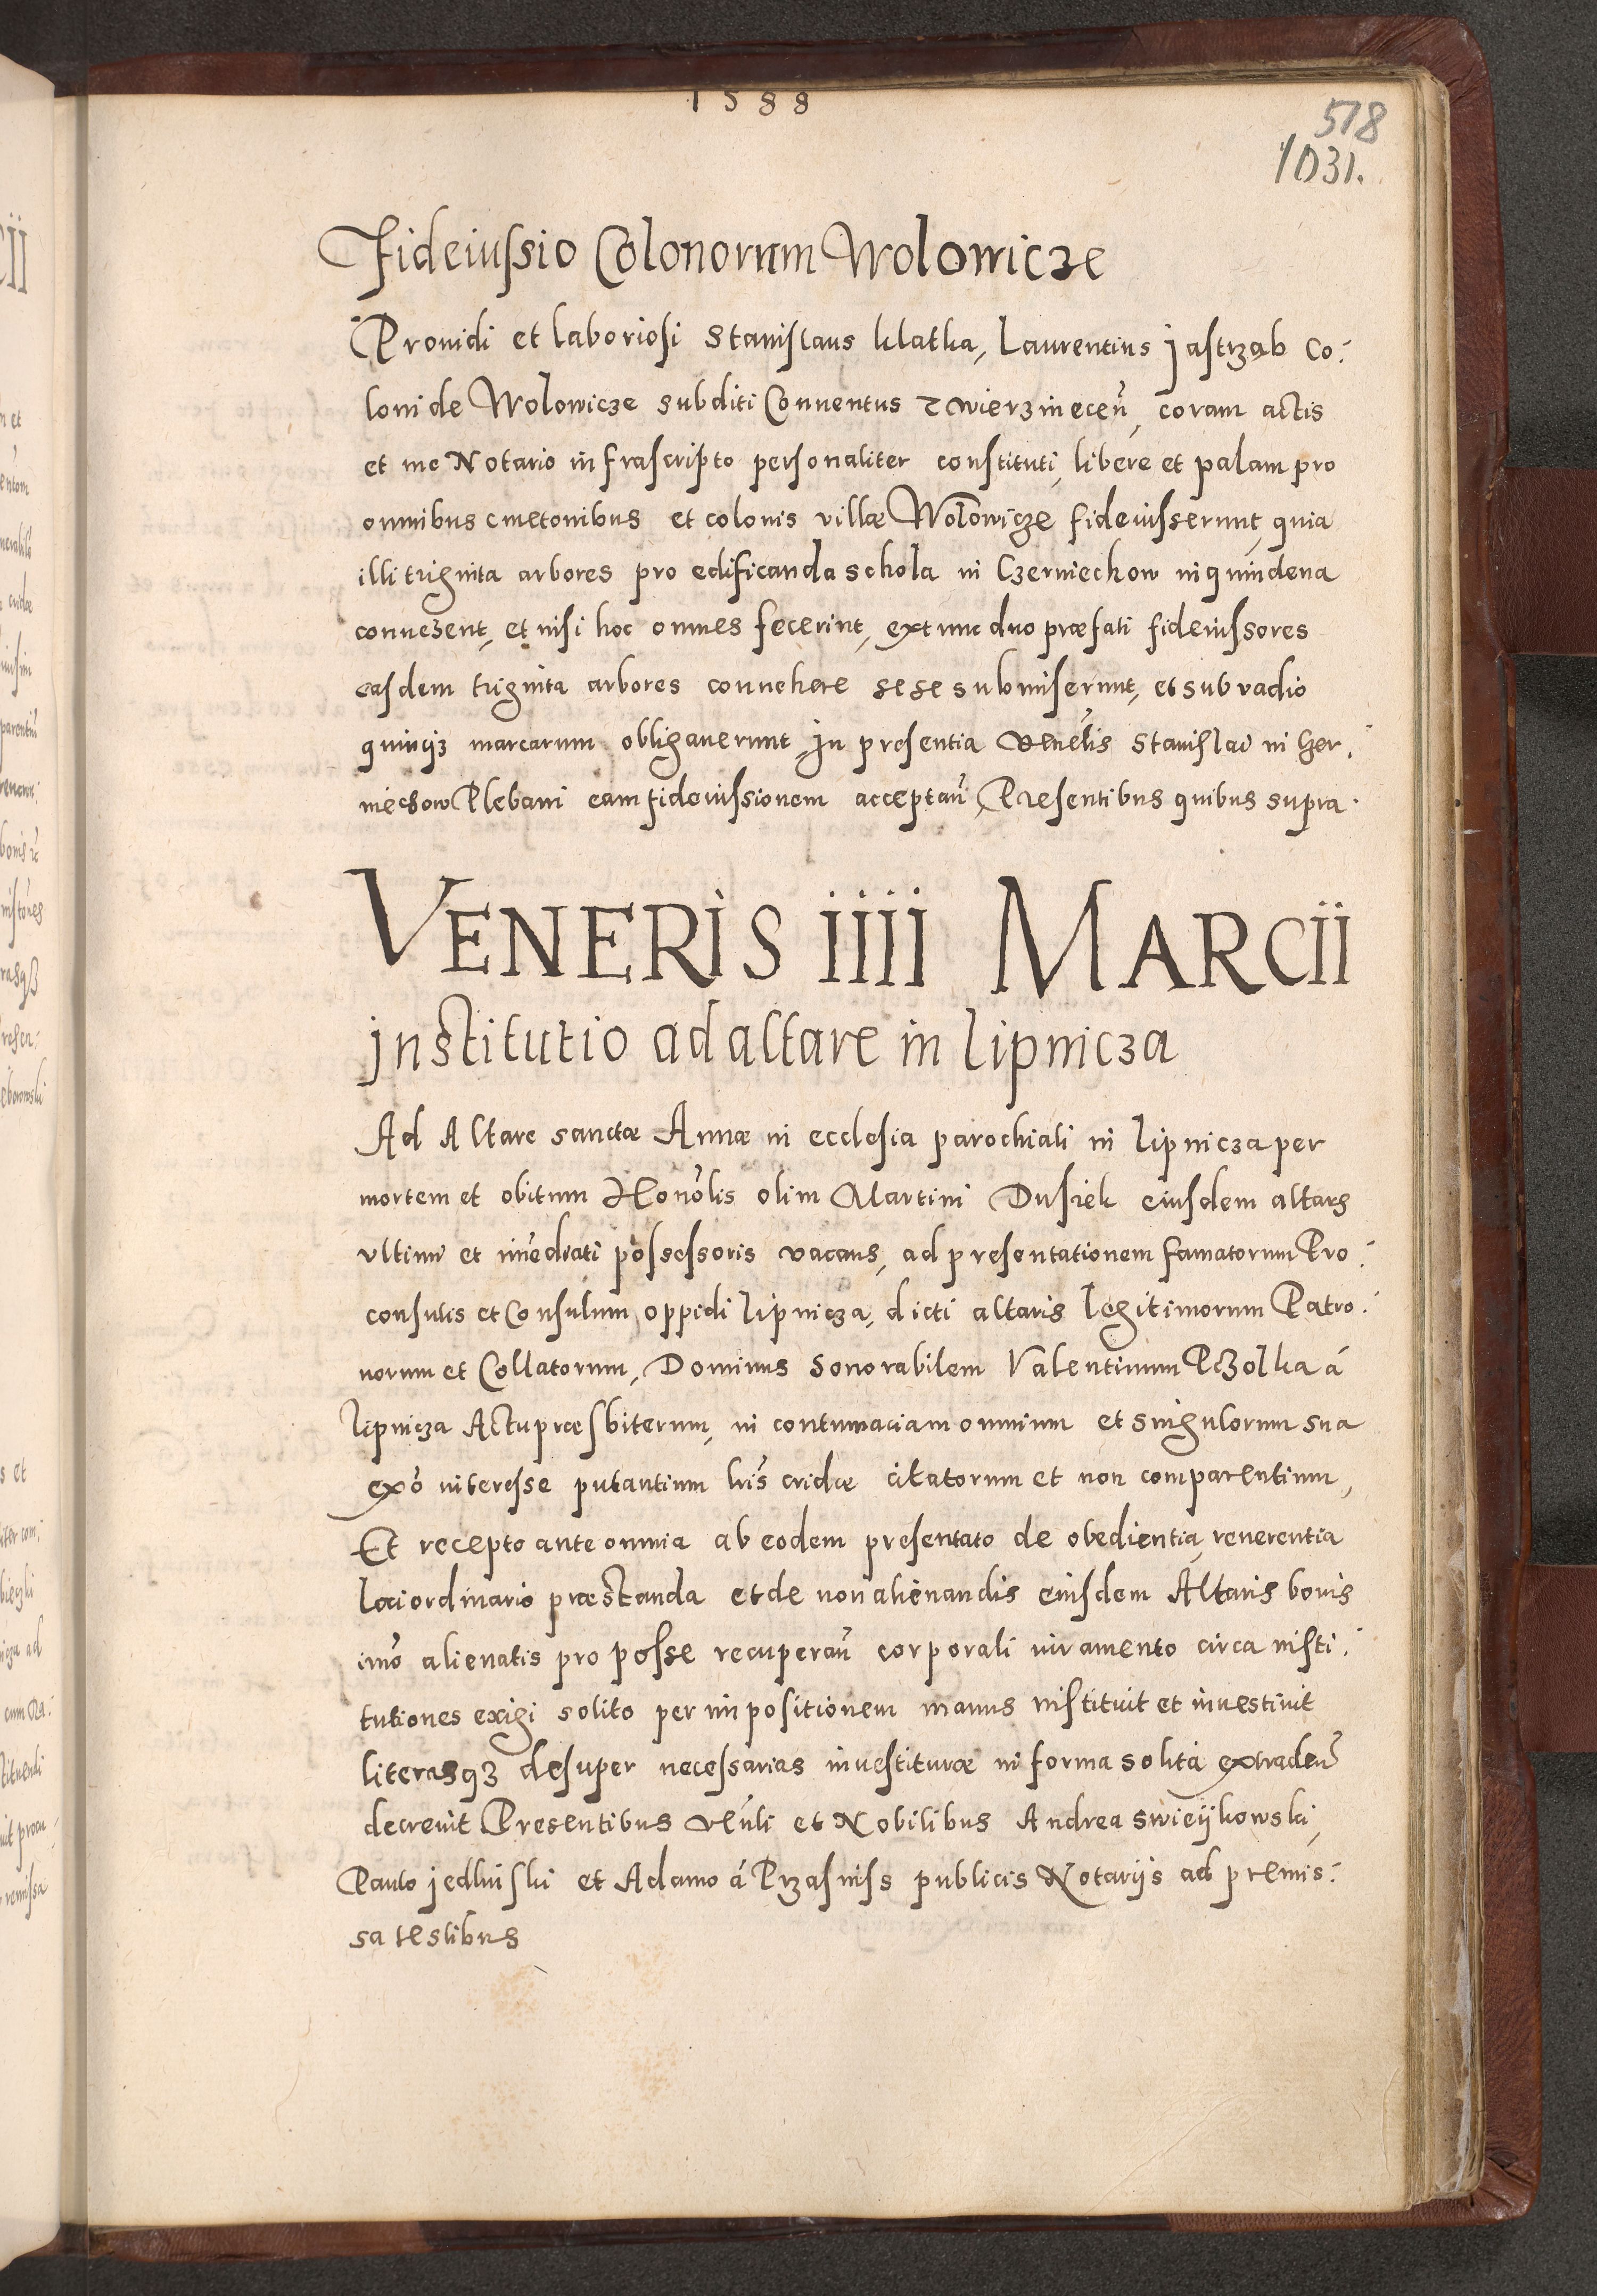 1588
518
1031.
Fideiussio Colonorum Wolowicze
Prouidi et laboriosi Stanislaus klatka, Laurentius jastrząb Co:
loni de Wolowicze subditi Conuentus Zwierzinecen̄, coram actis
et me Notario infrascripto personaliter constituti, libere et palam pro
omnibus cmetonibus et colonis villæ Wolowicze fideiusserunt, quia
illi triginta arbores pro edificanda schola in Czerniechow in quindena
conuezent, et nisi hoc omnes fecerint, extunc duo præfati fideiussores
easdem triginta arbores connehere sese submiserunt, et sub vadio
quinqz marcarum obligauerunt in presentia Venēlis Stanislai in Czer.
niechow Plebani eam fideiussionem acceptan̄, Presentibus quibus supra.
VENERIS IIII MARCII
institutio ad altare in Lipnicza
Ad Altare sanctæ Annæ in ecclesia parochiali in Lipnicza per
mortem et obitum Honōlis olim Martini Dusiek eiusdem altaris
vltimi et im̄ediati possessoris vacans, ad presentationem famatorum Pro:
consulis et Consulum oppidi Lipnicza, dicti altaris legitimorum Patro:
norum et Collatorum, Dominus Honorabilem Valentinum Pczolka á
Lipnicza Actu præsbiterum, in contumaciam omnium et singulorum sua
exō interesse putantium lrīs cridæ citatorum et non comparentium,
Et recepto ante omnia ab eodem presentato de obedientia, reuerentia
loci ordinario præstanda et de non alienandis eiusdem Altaris bonis
imō alienatis pro posse recuperan̄ corporali iuramento circa insti:
tutiones exigi solito per impositionem manus instituit et inuestiuit
literasqz desuper necessarias inuestituræ in forma solita extraden̄
decreuit Presentibus Ven̄li et Nobilibus Andrea Swieykowski,
Paulo jedlinski et Adamo á Przasniss publicis Notarijs ad premis:
sa testibus